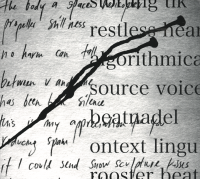 the body a space
propeller stillness
no harm can fall
between v and me
has been silence
this is my appreciation
if I could send snow sculpture kisses
restless hear
algorithmica
source voice
beatnadel
ontext lingu
rooster beat